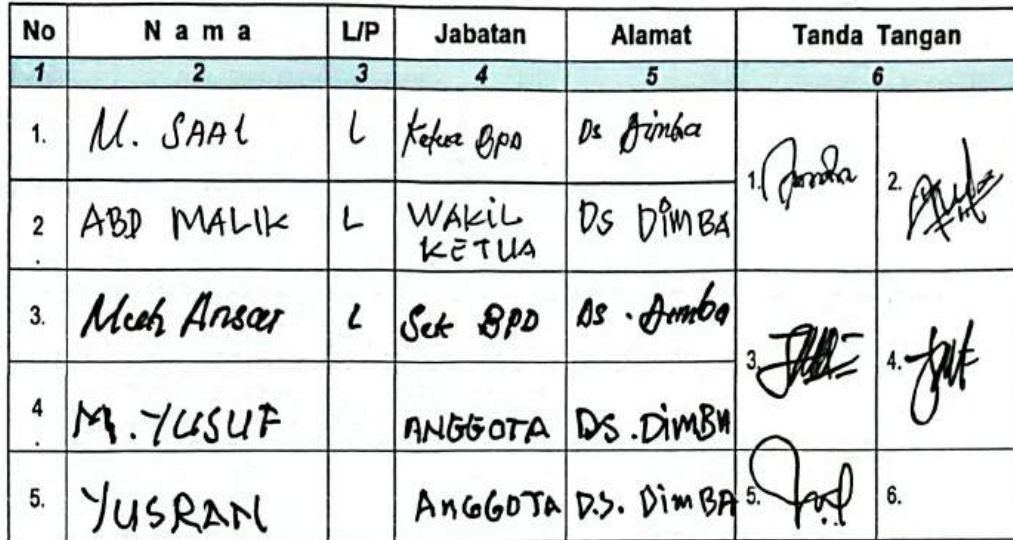 No N a m a L/P Jabatan Alamat Tanda Tangan
1 2 3 4 5 6
1. M. SAAL L Ketua BPD Ds Dimba
1. 2.
2. ABD MALIK L WAKIL KETUA DS DIMBA
3. Muh Ansar L Sek BPD Ds. Dimba
3. 4.
4. M. YUSUF ANGGOTA DS. DIMBA
5. YUSRAN ANGGOTA D.S. DIMBA 5. 6.